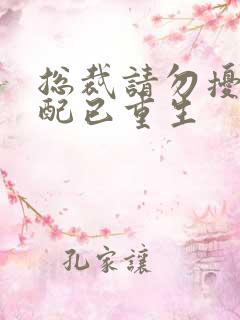 总裁請勿擾
配已重生
孔家讓